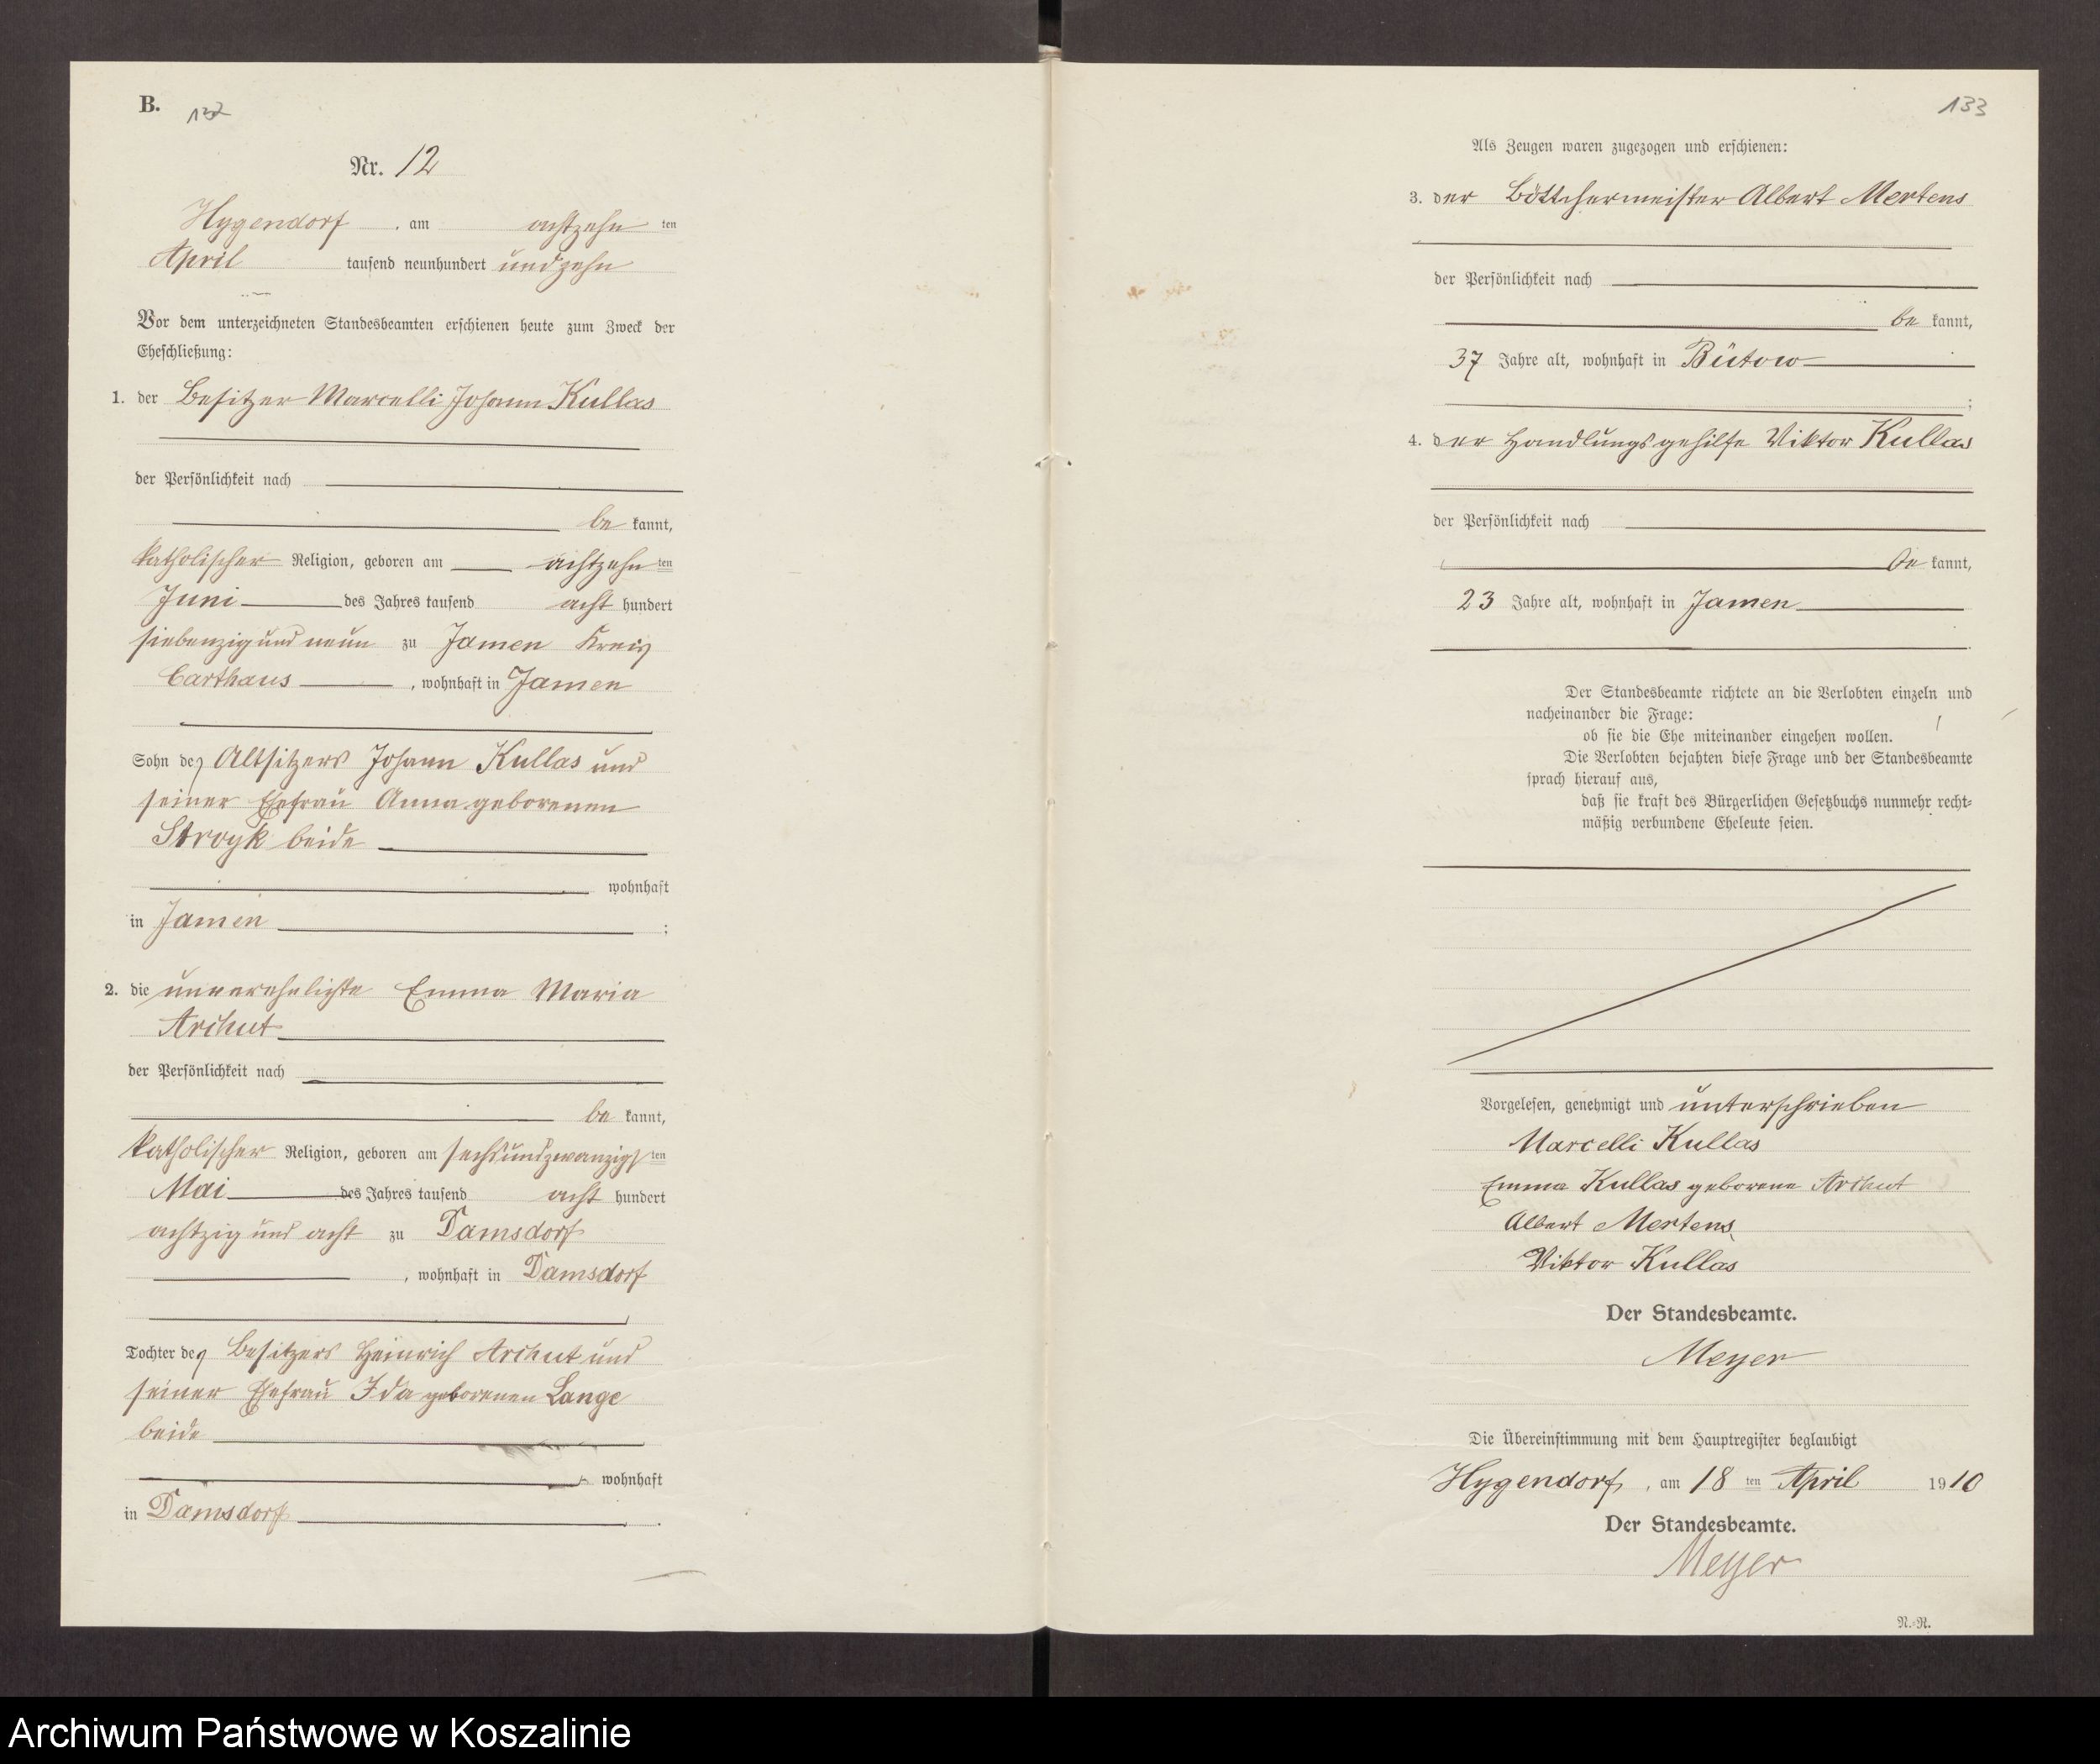 B.
132
Nr. 12
Hygendorf, am achtzehnten
April tausend neunhundert und zehn
Vor dem unterzeichneten Standesbeamten erschienen heute zum Zweck der
Eheschließung:
1. der Besitzer Marcelli Johann Kullas
der Persönlichkeit nach
be kannt,
katholischer Religion, geboren am achtzehnten
Juni des Jahres tausend acht hundert
siebenzig und neun zu Jamen Kreis
Carthaus, wohnhaft in Jamen
Sohn des Altsitzers Johann Kullas und
seiner Ehefrau Anna geborenen
Stroyk beide
wohnhaft
in Jamen ;
2. die unverehelichte Emma Maria
Archut
der Persönlichkeit nach
be kannt,
katholischer Religion, geboren am sechsundzwanzigsten
Mai des Jahres tausend acht hundert
achtzig und acht zu Damsdorf
, wohnhaft in Damsdorf
Tochter des Besitzers Heinrich Archut und
seiner Ehefrau Ida geborenen Lange
beide
wohnhaft
in Damsdorf .
133
Als Zeugen waren zugezogen und erschienen:
3. der Böttchermeister Albert Mertens
der Persönlichkeit nach
be kannt,
37 Jahre alt, wohnhaft in Bütow
;
4. der Handlungsgehilfe Viktor Kullas
der Persönlichkeit nach
be kannt,
23 Jahre alt, wohnhaft in Jamen
.
Der Standesbeamte richtete an die Verlobten einzeln und
nacheinander die Frage:
ob sie die Ehe miteinander eingehen wollen.
Die Verlobten bejahten diese Frage und der Standesbeamte
sprach hierauf aus,
daß sie kraft des Bürgerlichen Gesetzbuchs nunmehr recht-
mäßig verbundene Eheleute seien.
Vorgelesen, genehmigt und unterschrieben
Marcelli Kullas
Emma Kullas geborene Archut
Albert Mertens
Viktor Kullas
Der Standesbeamte.
Meyer
Die Übereinstimmung mit dem Hauptregister beglaubigt
Hygendorf, am 18ten April 1910
Der Standesbeamte.
Meyer
N.-R.
Archiwum Państwowe w Koszalinie